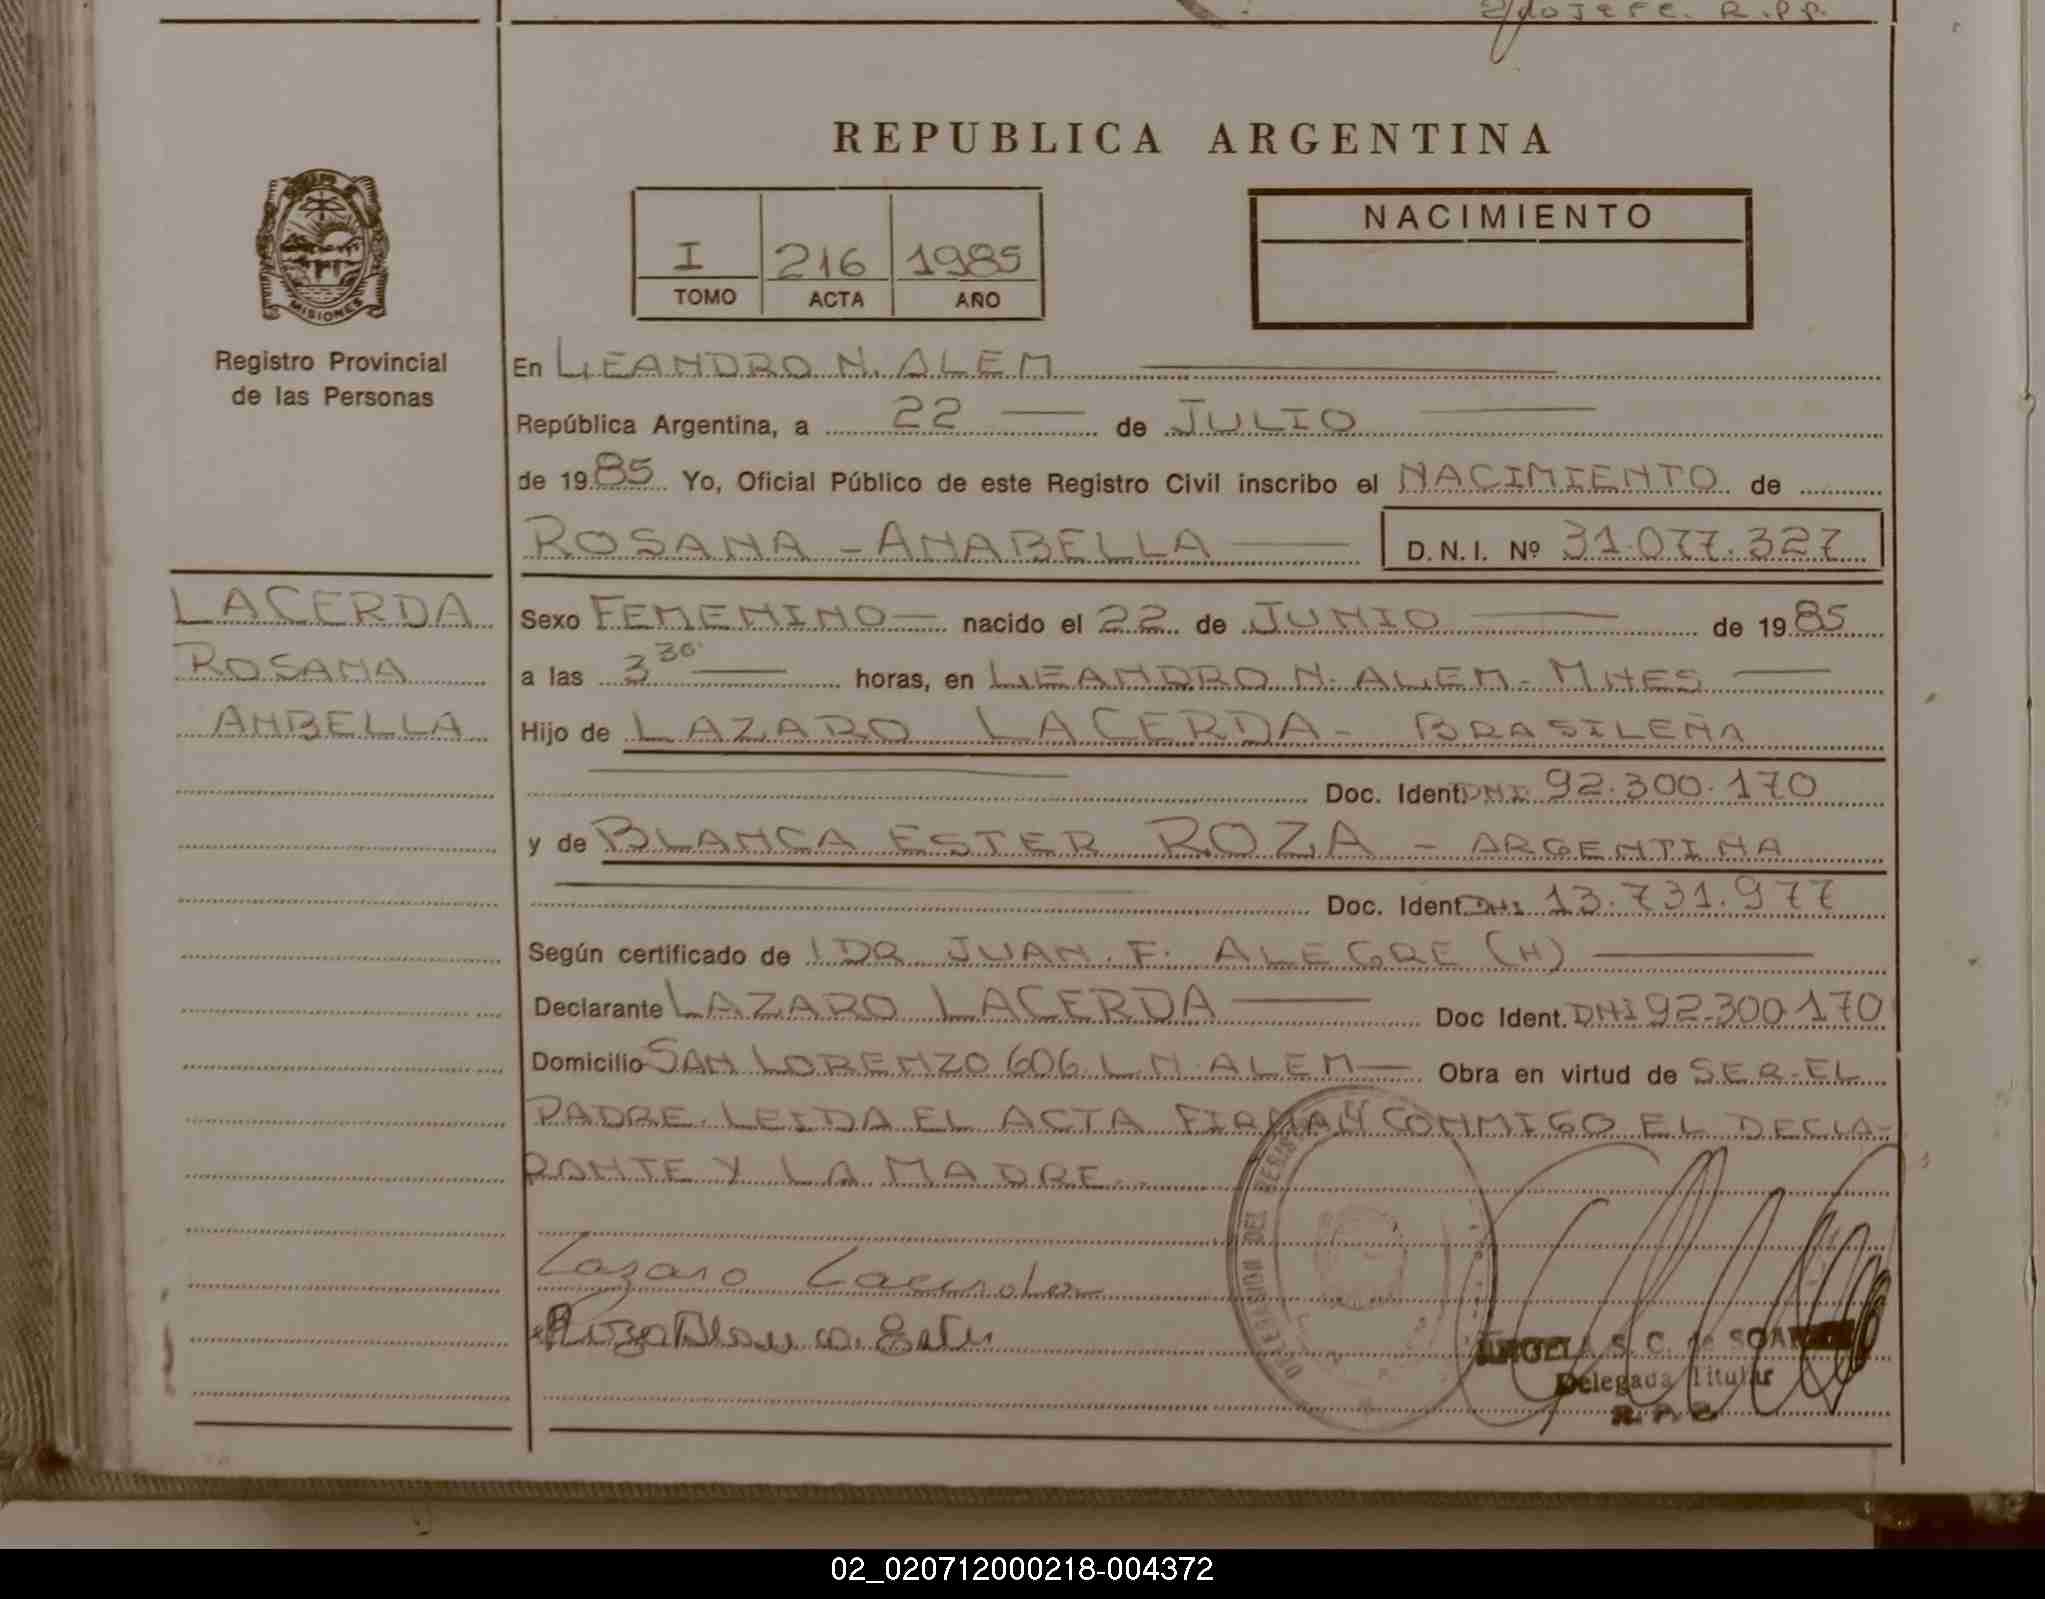 2/do Jefe. R.P.P.
REPUBLICA ARGENTINA
NACIMIENTO
I 216 1985
TOMO ACTA AÑO
MISIONES
Registro Provincial
de las Personas
En LEANDRO N. ALEM
República Argentina, a 22 de JULIO
de 1985 Yo, Oficial Público de este Registro Civil inscribo el NACIMIENTO de
ROSANA - ANABELLA D.N.I. Nº 31.077.327
LACERDA
ROSANA
ANBELLA
Sexo FEMENINO nacido el 22 de JUNIO de 1985
a las 3 30 horas, en LEANDRO N. ALEM - MNES
Hijo de LAZARO LACERDA - BRASILEÑA
Doc. Ident. DNI 92.300.170
y de BLANCA ESTER ROZA - ARGENTINA
Doc. Ident. DNI 13.731.977
Según certificado de DR JUAN F. ALEGRE (H)
Declarante LAZARO LACERDA Doc Ident. DNI 92.300.170
Domicilio SAN LORENZO 606 L N. ALEM Obra en virtud de SER EL
PADRE. LEIDA EL ACTA FIRMAN CONMIGO EL DECLA-
RANTE Y LA MADRE.
Lazaro Lacerda
Roza Blanca Ester
DELEGACION DEL REGIS
S. C. de SOAR
Delegada Titular
R. P. P.
02_020712000218-004372